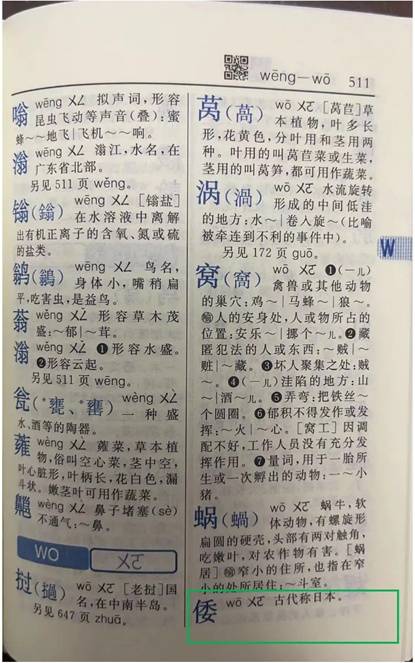 wēng－wō 511
嗡 wēng ㄨㄥ 拟声词，形容
昆虫飞动等声音（叠）：蜜
蜂～～地飞｜飞机～～响。
滃 wēng ㄨㄥ 滃江，水名，在
广东省北部。
另见 511 页 wěng。
鎓（鎓） wēng ㄨㄥ ［鎓盐］
在水溶液中离解
出有机正离子的含氧、氮或硫
的盐类。
鹟（鶲） wēng ㄨㄥ 鸟名，
身体小，嘴稍扁
平，吃害虫，是益鸟。
蓊 wěng ㄨㄥˇ 形容草木茂
盛：～郁｜～茸。
滃 wěng ㄨㄥˇ ❶形容水盛。
❷形容云起。
另见 511 页 wēng。
瓮（*甕、*罋） wèng ㄨㄥˋ
一种盛
水、酒等的陶器。
蕹 wèng ㄨㄥˋ 蕹菜，草本植
物，俗叫空心菜，茎中空，
叶心脏形，叶柄长，花白色，漏
斗状。嫩茎叶可用作蔬菜。
齆 wèng ㄨㄥˋ 鼻子堵塞（sè）
不通气：～鼻。
WO ㄨㄛ
挝（撾） wō ㄨㄛ ［老挝］国
名，在中南半岛。
另见 647 页 zhuā。
莴（萵） wō ㄨㄛ ［莴苣］草
本植物，叶多长
形，花黄色，分叶用和茎用两
种。叶用的叫莴苣菜或生菜，
茎用的叫莴笋，都可用作蔬菜。
涡（渦） wō ㄨㄛ 水流旋转
形成的中间低洼
的地方：水～｜卷入旋～（比喻
被牵连到不利的事件中）。
另见 172 页 guō。
W
窝（窩） wō ㄨㄛ ❶（—儿）
禽兽或其他动物
的巢穴：鸡～｜马蜂～｜狼～。
喻人的安身处，人或物所占的
位置：安乐～｜挪个～儿。❷藏
匿犯法的人或东西：～贼｜～
赃｜～藏。❸坏人聚集之处：贼
～。❹（—儿）洼陷的地方：山
～｜酒～儿。❺弄弯：把铁丝～
个圆圈。❻郁积不得发作或发
挥：～火｜～心。［窝工］因调
配不好，工作人员没有充分发
挥作用。❼量词，用于一胎所
生或一次孵出的动物：一～小
猪。
蜗（蝸） wō ㄨㄛ 蜗牛，软
体动物，有螺旋形
扁圆的硬壳，头部有两对触角，
吃嫩叶，对农作物有害。［蜗
居］喻窄小的住所，也指在窄
小的处所居住：～斗室。
倭 wō ㄨㄛ 古代称日本。